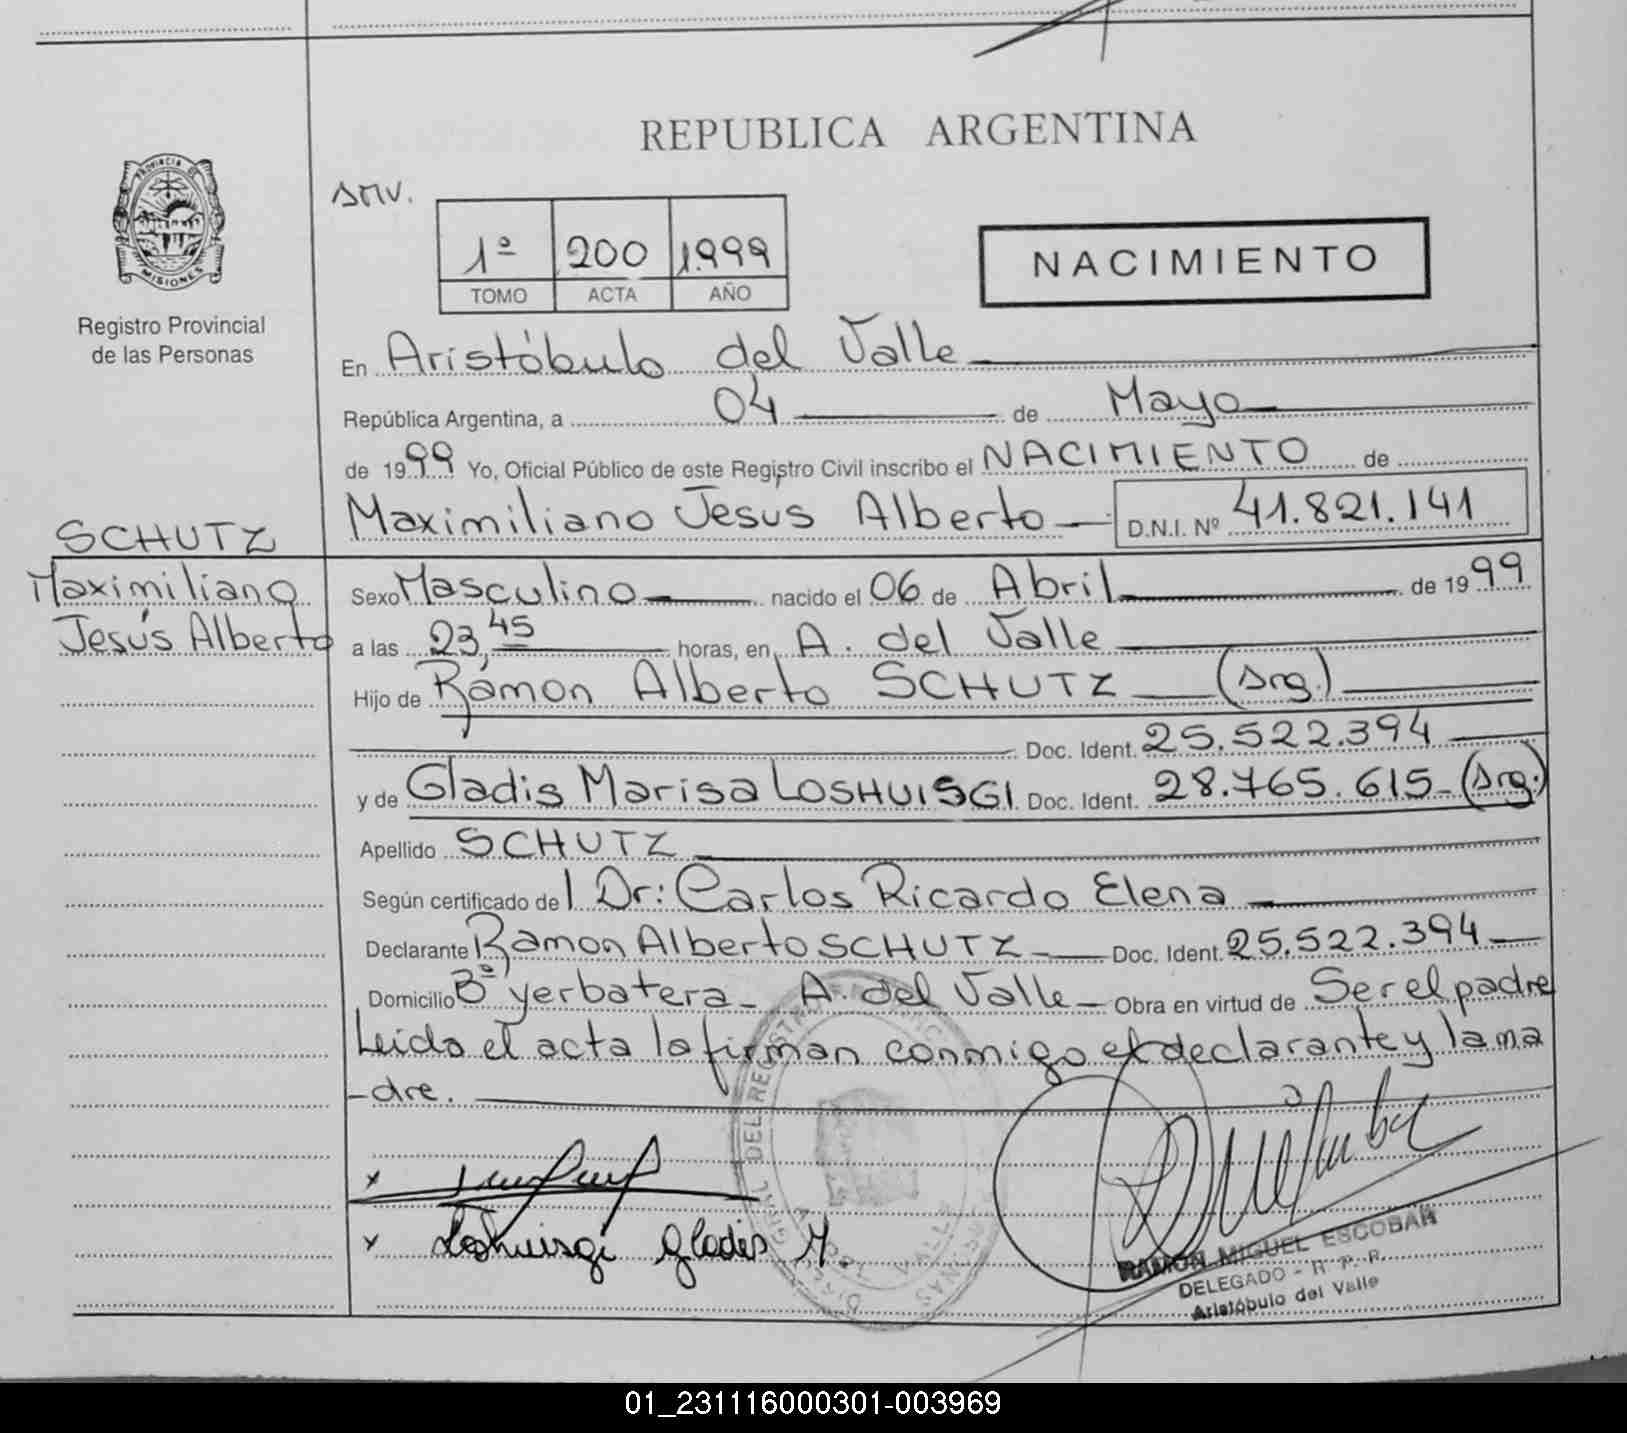 REPUBLICA ARGENTINA
PROVINCIA DE
MISIONES
Registro Provincial
de las Personas
1º 200 1999
TOMO ACTA AÑO
NACIMIENTO
En Aristóbulo del Valle
República Argentina, a 04 de Mayo
de 1999 Yo, Oficial Público de este Registro Civil inscribo el NACIMIENTO de
Maximiliano Jesús Alberto D.N.I. Nº 41.821.141
SCHUTZ
Maximiliano
Jesús Alberto
Sexo Masculino nacido el 06 de Abril de 1999
a las 23,45 horas, en A. del Valle
Hijo de Ramon Alberto SCHUTZ (Arg.)
Doc. Ident. 25.522.394
y de Gladis Marisa LOSHUISGI Doc. Ident. 28.765.615 (Arg.)
Apellido SCHUTZ
Según certificado del Dr: Carlos Ricardo Elena
Declarante Ramon Alberto SCHUTZ Doc. Ident. 25.522.394
Domicilio Bº yerbatera - A. del Valle - Obra en virtud de Ser el padre
Leida el acta la firman conmigo el declarante y la ma
-dre.
x
x Loshuisgi Gladis M
RAMON MIGUEL ESCOBAR
DELEGADO - R. P. P.
Aristóbulo del Valle
01_231116000301-003969